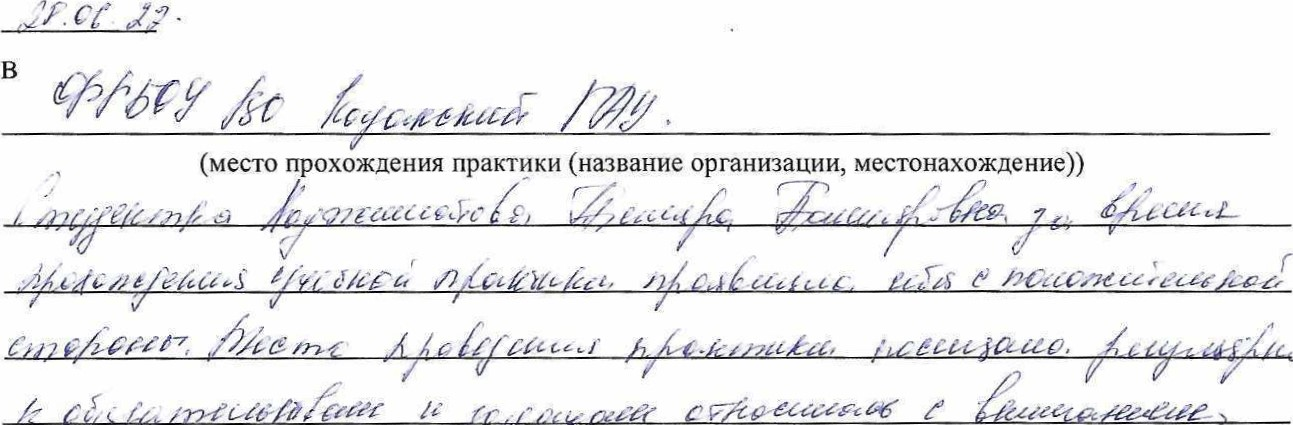 28.06.22.
в
ФГБОУ ВО Казанский ГАУ.
(место прохождения практики (название организации, местонахождение))
Студентка за время
прохождения учебной практики проявила себя с положительной
стороны. Место проведения практики посещала регулярн
к обязательствам и относилась с вниманием,